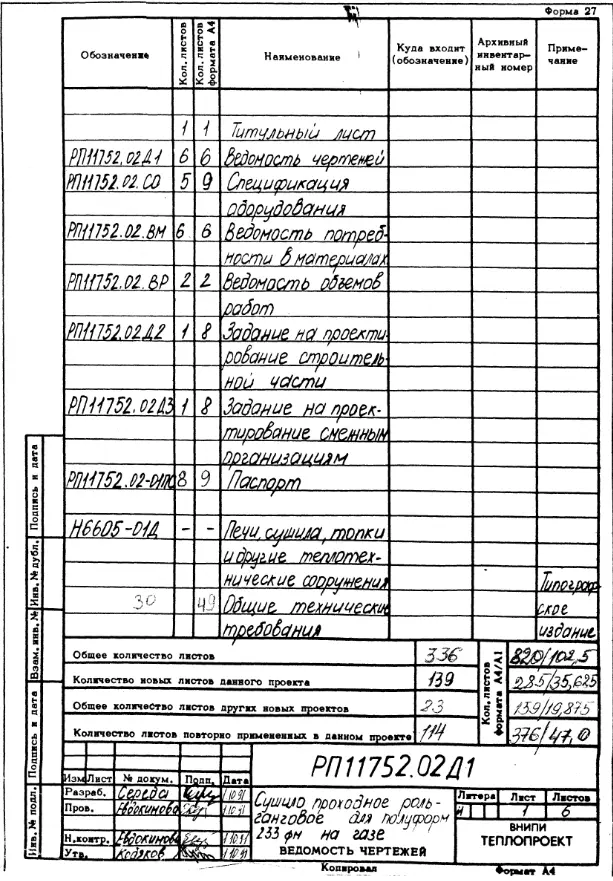 Форма 27
Обозначение Кол. листов Кол. листов формата А4 Наименование Куда входит (обозначение) Архивный инвентарный номер Примечание
1 1 Титульный лист
РП11752.02Д1 6 6 Ведомость чертежей
РП11752.02.СО 5 9 Спецификация
оборудования
РП11752.02.ВМ 6 6 Ведомость потреб-
ности в материалах
РП11752.02.ВР 2 2 Ведомость объемов
работ
РП11752.02Д2 1 8 Задание на проекти-
рование строитель-
ной части
РП11752.02Д3 1 8 Задание на проек-
тирование смежным
организациям
РП11752.02-01ПС 8 9 Паспорт
Н6605-01Д - - Печи, сушила, топки
и другие теплотех-
нические сооружения
30 49 Общие технические
требования
Типограф-
ское
издание
Общее количество листов 336
Количество новых листов данного проекта 139
Общее количество листов других новых проектов 23
Количество листов повторно примененных в данном проекте 114
Кол. листов формата А4/А1
820/102,5
285/35,625
159/19,875
376/47,0
Подпись и дата
Инв. № дубл.
Взам. инв. №
Подпись и дата
Инв. № подл.
РП11752.02Д1
Изм Лист № докум. Подп. Дата
Разраб. Середа
Пров. Евдокимова
Н.контр. Евдокимова
Утв.
Сушило проходное роль-
ганговое для полуформ
233 фн на газе
ВЕДОМОСТЬ ЧЕРТЕЖЕЙ
Литера Лист Листов
И 1 6
ВНИПИ
ТЕПЛОПРОЕКТ
Копировал Формат А4